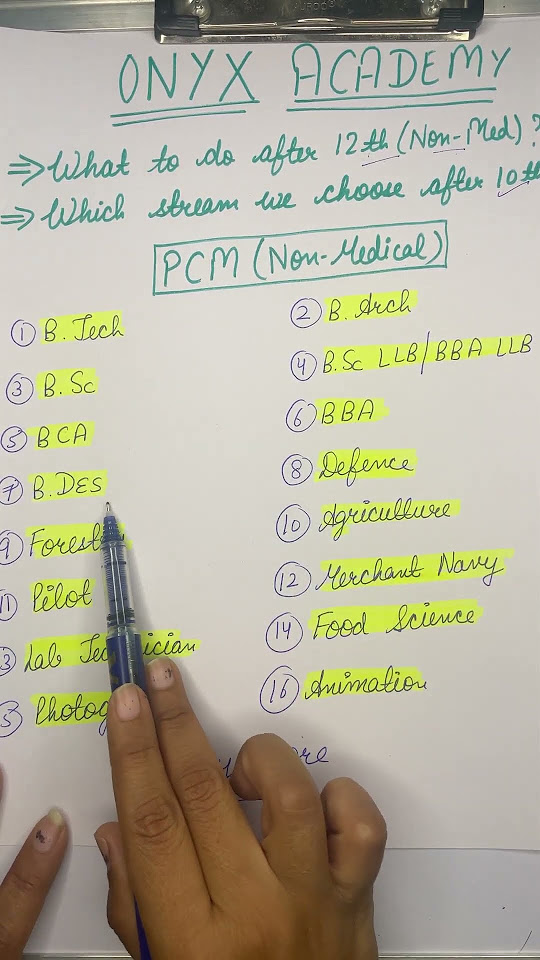 ONYX ACADEMY
⇒ What to do after 12th (Non-Med)?
⇒ Which stream we choose after 10th
PCM (Non-Medical)
① B. Tech
② B. Arch
③ B. Sc
④ B.Sc LLB/BBA LLB
⑤ BCA
⑥ BBA
⑦ B.DES
⑧ Defence
⑨
⑩ Agriculture
⑪ Pilot
⑫ Merchant Navy
Lab
⑭ Food Science
⑯ Animation